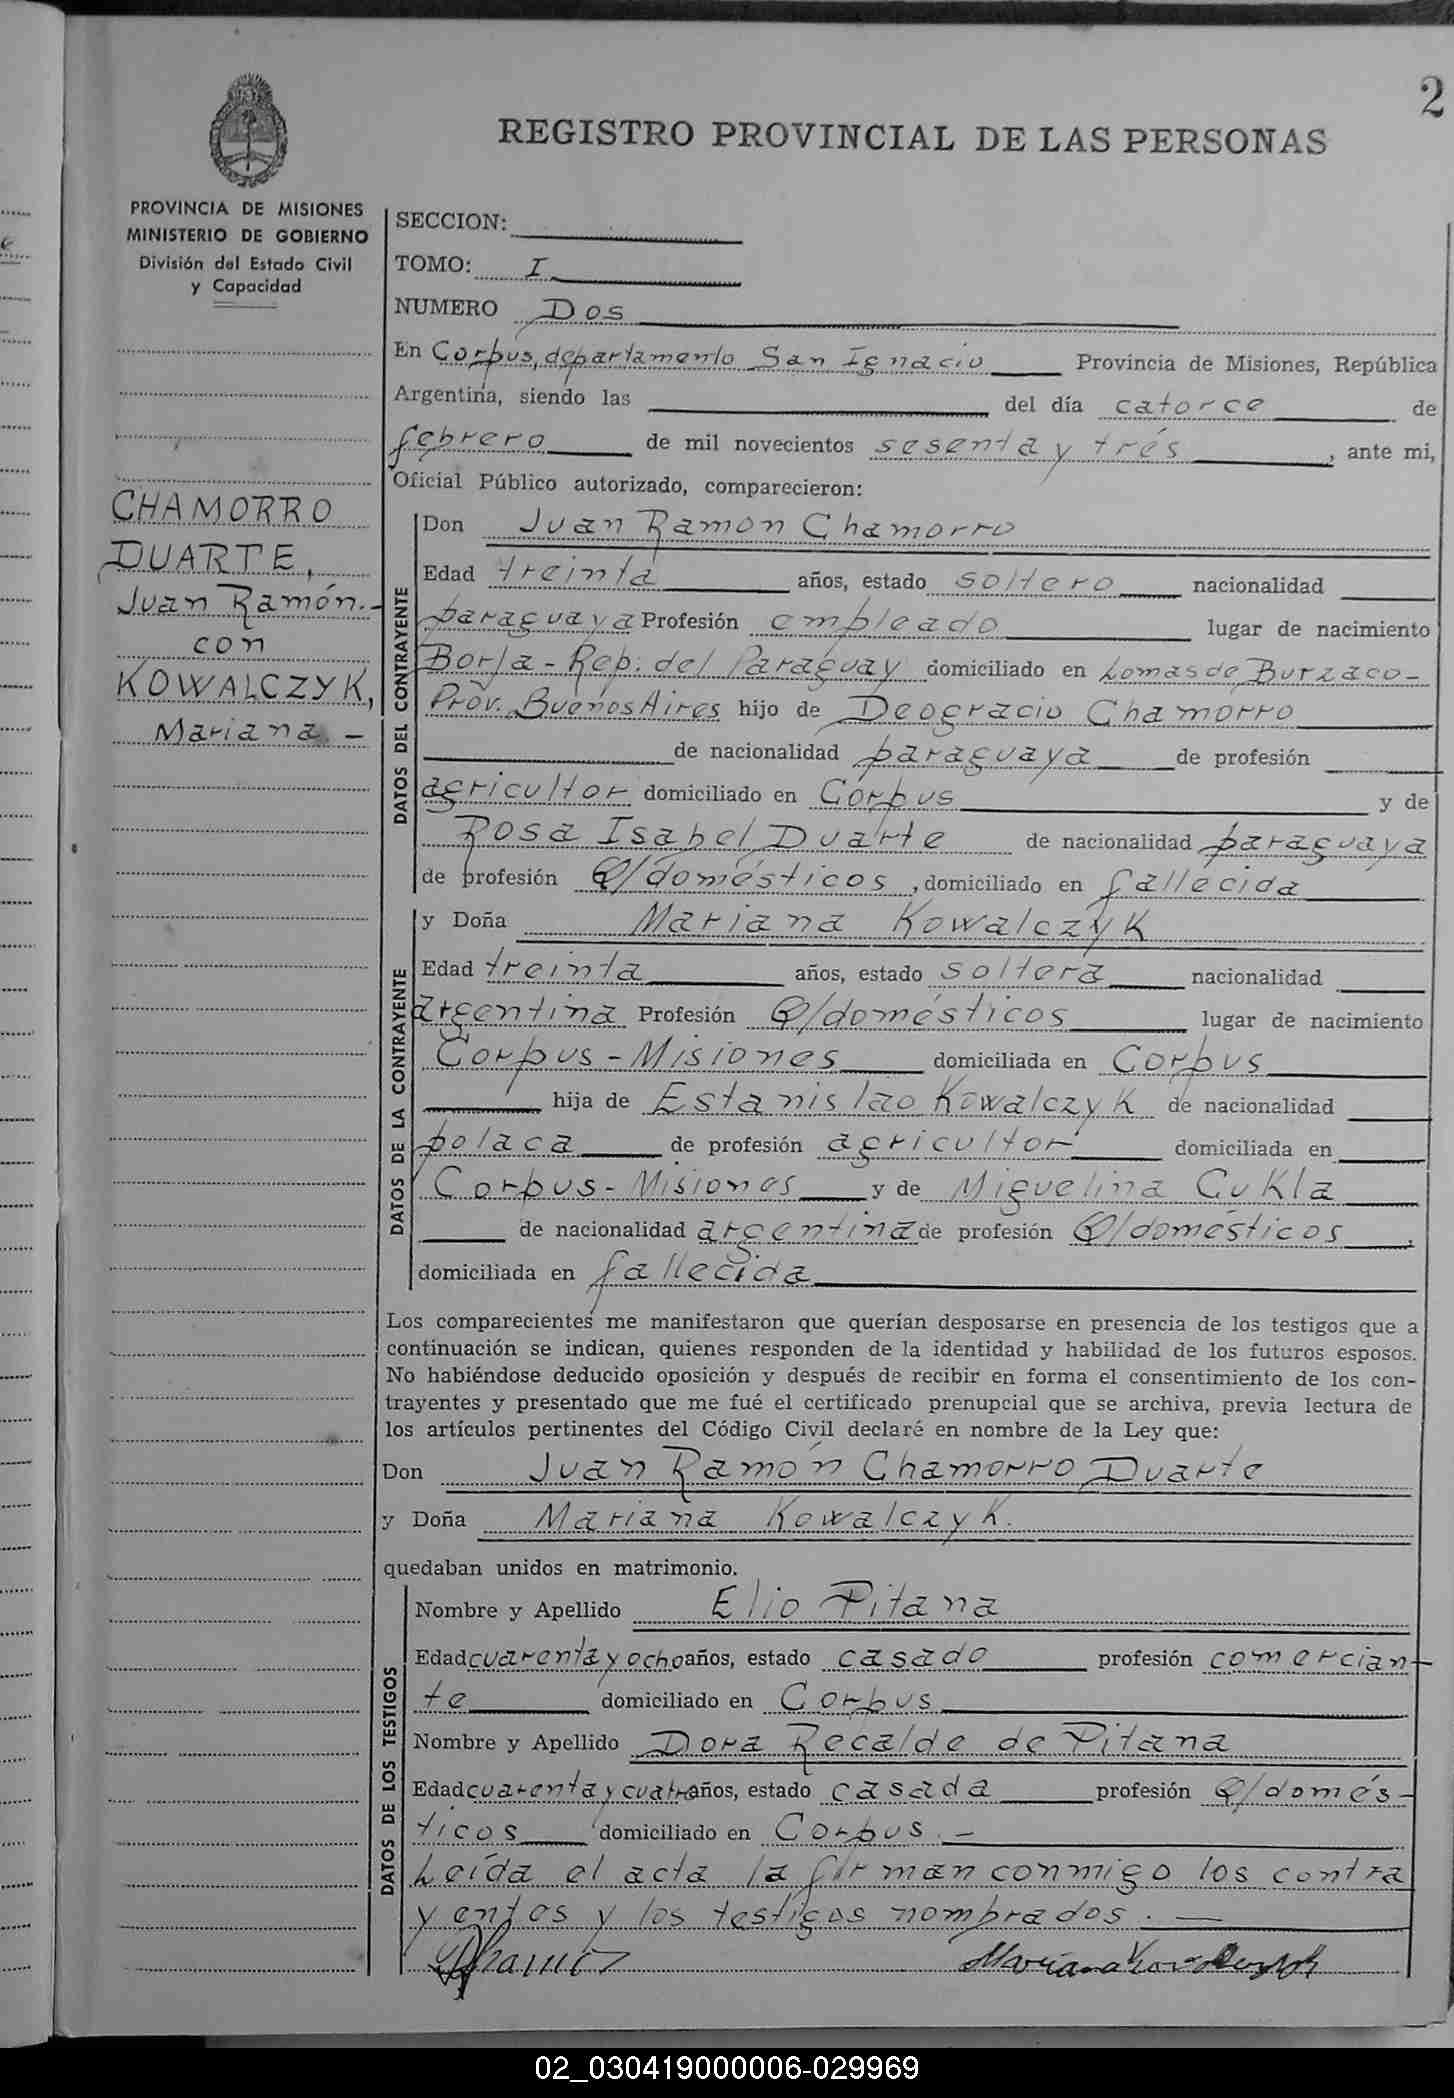 2
REGISTRO PROVINCIAL DE LAS PERSONAS
PROVINCIA DE MISIONES
MINISTERIO DE GOBIERNO
División del Estado Civil
y Capacidad
CHAMORRO
DUARTE,
Juan Ramón.-
con
KOWALCZYK,
Mariana.-
SECCION:
TOMO: I
NUMERO Dos
En Corpus, departamento San Ignacio Provincia de Misiones, República
Argentina, siendo las del día catorce de
febrero de mil novecientos sesenta y trés, ante mi,
Oficial Público autorizado, comparecieron:
DATOS DEL CONTRAYENTE
Don Juan Ramón Chamorro
Edad treinta años, estado soltero nacionalidad
paraguaya Profesión empleado lugar de nacimiento
Borja - Rep. del Paraguay domiciliado en Lomas de Burzaco-
Prov. Buenos Aires hijo de Deogracio Chamorro
de nacionalidad paraguaya de profesión
agricultor domiciliado en Corpus y de
Rosa Isabel Duarte de nacionalidad paraguaya
de profesión Q/domésticos, domiciliado en fallecida
DATOS DE LA CONTRAYENTE
y Doña Mariana Kowalczyk
Edad treinta años, estado soltera nacionalidad
argentina Profesión Q/domésticos lugar de nacimiento
Corpus - Misiones domiciliada en Corpus
hija de Estanislao Kowalczyk de nacionalidad
polaca de profesión agricultor domiciliada en
Corpus - Misiones y de Miguelina Cukla
de nacionalidad argentina de profesión Q/domésticos,
domiciliada en fallecida
Los comparecientes me manifestaron que querían desposarse en presencia de los testigos que a
continuación se indican, quienes responden de la identidad y habilidad de los futuros esposos.
No habiéndose deducido oposición y después de recibir en forma el consentimiento de los con-
trayentes y presentado que me fué el certificado prenupcial que se archiva, previa lectura de
los artículos pertinentes del Código Civil declaré en nombre de la Ley que:
Don Juan Ramón Chamorro Duarte
y Doña Mariana Kowalczyk.
quedaban unidos en matrimonio.
DATOS DE LOS TESTIGOS
Nombre y Apellido Elio Pitana
Edad cuarenta y ocho años, estado casado profesión comercian-
te domiciliado en Corpus
Nombre y Apellido Dora Recalde de Pitana
Edad cuarenta y cuatro años, estado casada profesión Q/domés-
ticos domiciliado en Corpus.-
Leída el acta la firman conmigo los contra
yentes y los testigos nombrados.-
Mariana
02_030419000006-029969